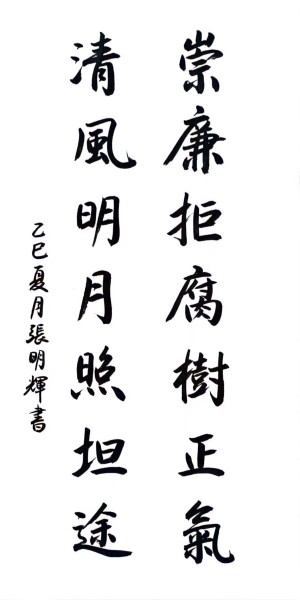 崇廉拒腐樹正氣
清風明月照坦途
乙巳夏月張明輝書